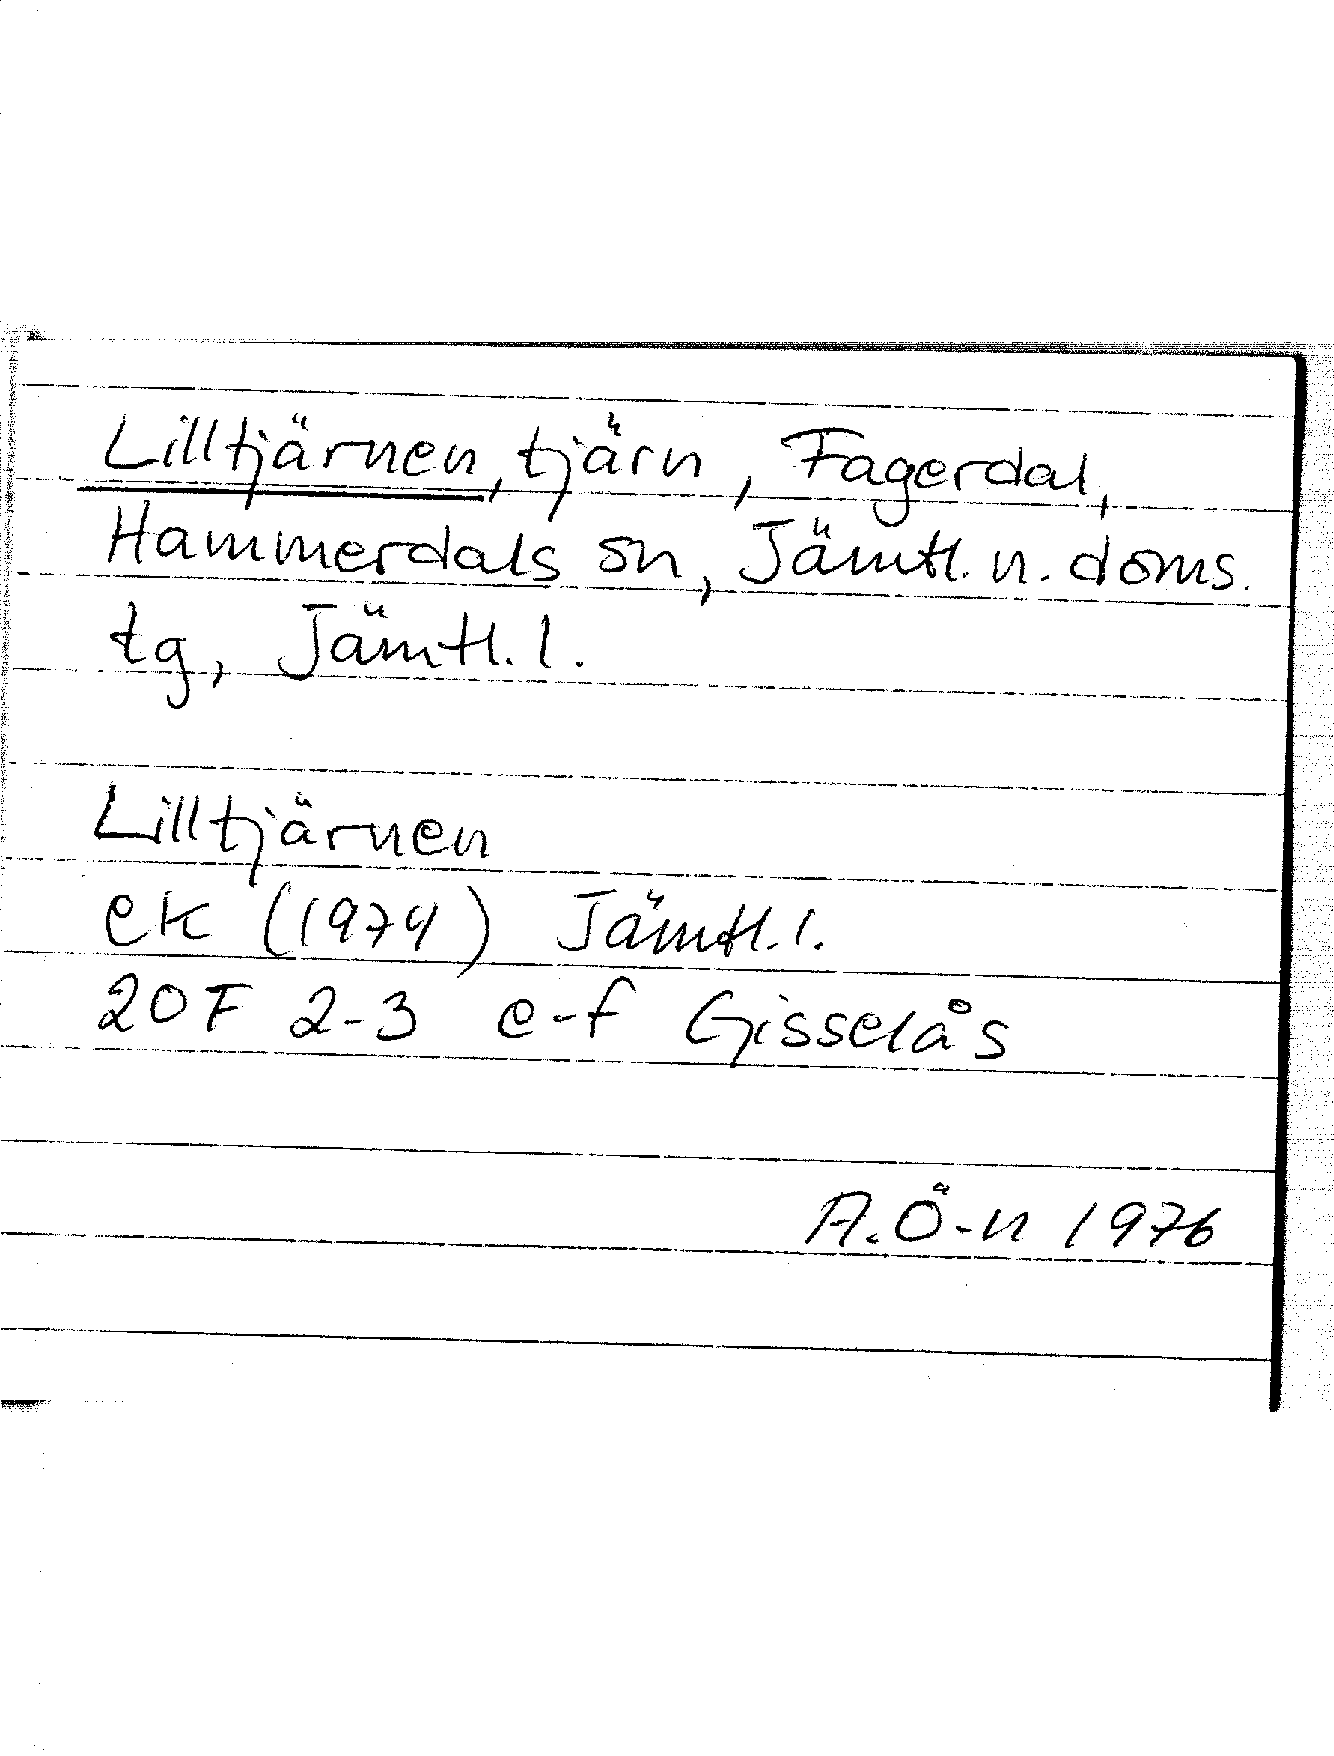 Lilltjärnen, tjärn, Fagerdal,
Hammerdals sn, Jämtl. n. doms.
tg, Jämtl. l.
Lilltjärnen
ek (1974) Jämtl. l.
20F 2-3 e-f Gisselås
A. Ö-n 1976